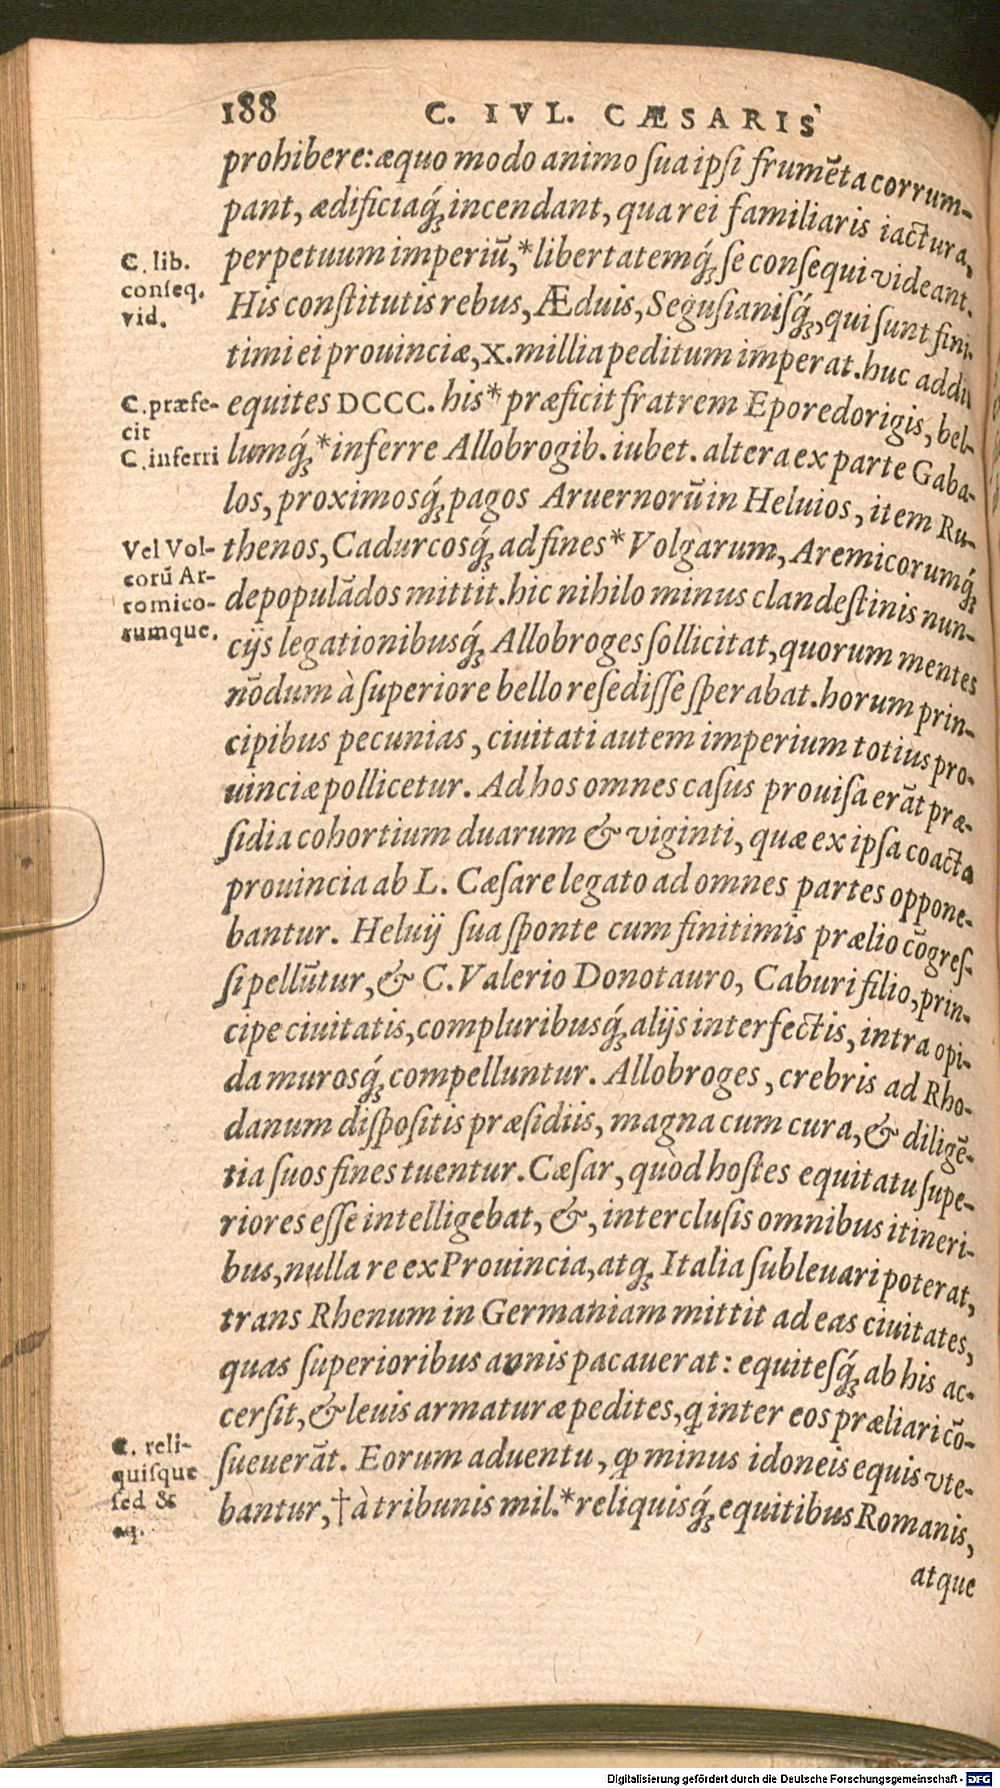 188 C. IVL. CÆSARIS
prohibere: æquo modo animo ſua ipſi frumēta corrum-
pant, ædificiaq́; incendant, qua rei familiaris iactura,
perpetuum imperiū, *libertatemq́; ſe conſequi videant.
C. lib.
conſeq.
vid.
His conſtitutis rebus, Æduis, Seguſianiſq́;, qui ſunt fini-
timi ei prouinciæ, X. millia peditum imperat. huc addit
equites DCCC. his* præficit fratrem Eporedorigis, bel-
C. præfe-
cit
lumq́; *inferre Allobrogib. iubet. altera ex parte Gaba-
C. inferri
los, proximosq́; pagos Aruernorū in Heluios, item Ru-
thenos, Cadurcosq́; ad fines* Volgarum, Aremicorumq́;
Vel Vol-
corū Ar-
tomico-
rumque.
depopulādos mittit. hic nihilo minus clandeſtinis nun-
cijs legationibusq́; Allobroges ſollicitat, quorum mentes
nōdum à ſuperiore bello reſediſſe ſperabat. horum prin-
cipibus pecunias, ciuitati autem imperium totius pro-
uinciæ pollicetur. Ad hos omnes caſus prouiſa erāt præ-
ſidia cohortium duarum & viginti, quæ ex ipſa coacta
prouincia ab L. Cæſare legato ad omnes partes oppone-
bantur. Heluij ſua ſponte cum finitimis prælio cōgreſ-
ſi pellūtur, & C. Valerio Donotauro, Caburi filio, prin-
cipe ciuitatis, compluribusq́; alijs interfectis, intra opi-
da murosq́; compelluntur. Allobroges, crebris ad Rho-
danum diſpoſitis præſidiis, magna cum cura, & diligē-
tia ſuos fines tuentur. Cæſar, quòd hoſtes equitatu ſupe-
riores eſſe intelligebat, &, intercluſis omnibus itineri-
bus, nulla re ex Prouincia, atq; Italia ſubleuari poterat,
trans Rhenum in Germaniam mittit ad eas ciuitates,
quas ſuperioribus annis pacauerat: equiteſq́; ab his ac-
cerſit, & leuis armaturæ pedites, ꝗ inter eos præliari cō-
ſueuerāt. Eorum aduentu, ꝙ minus idoneis equis vte-
bantur, † à tribunis mil. *reliquisq́; equitibus Romanis,
C. reli-
quiſque
ſed &
eq.
atque
Digitalisierung gefördert durch die Deutsche Forschungsgemeinschaft - DFG